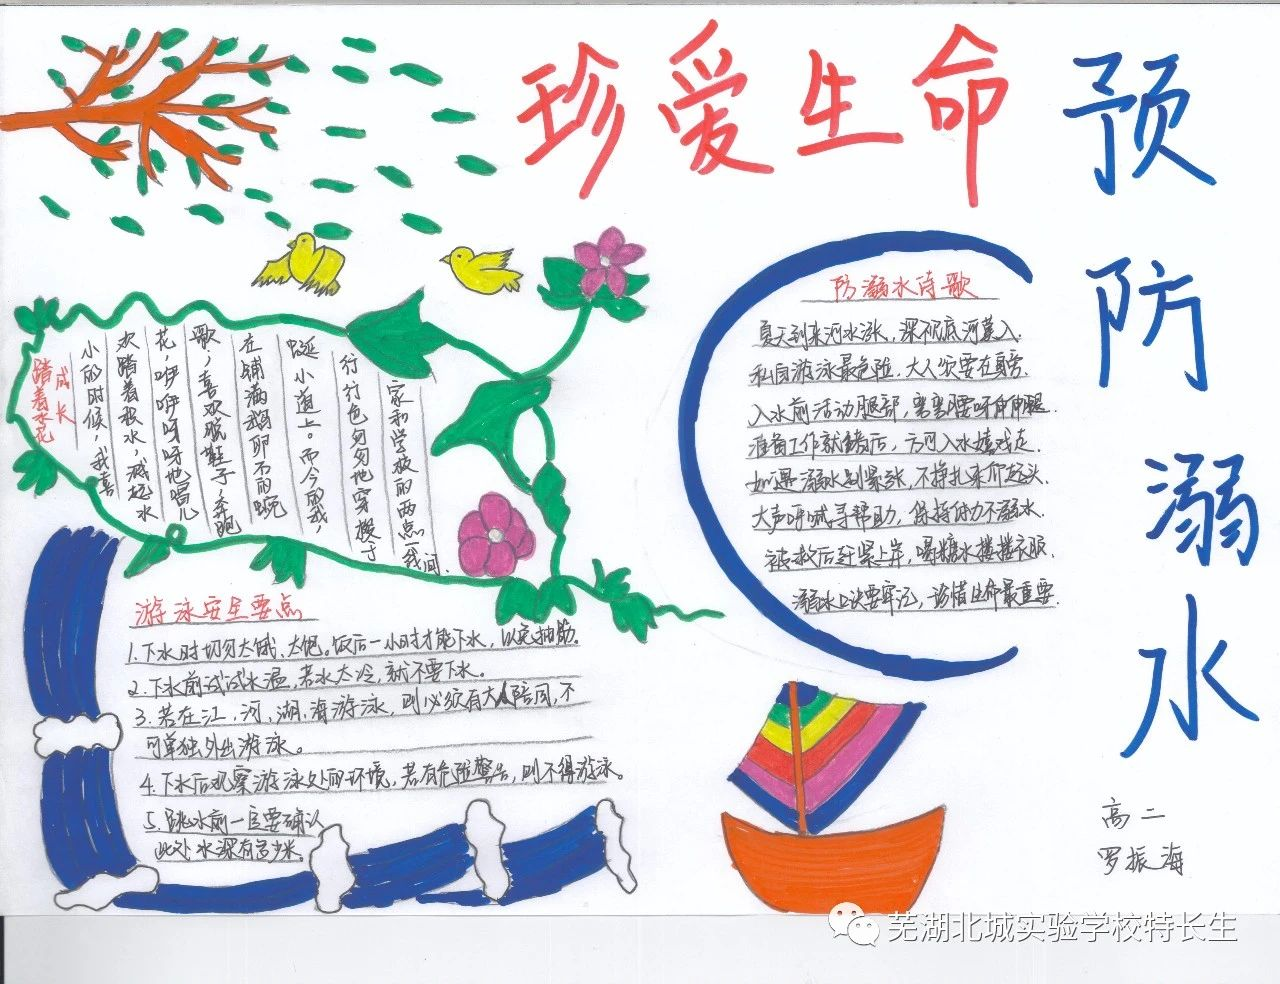 珍爱生命
预防溺水
成长
踏着水花
小的时候，我喜
欢踏着积水，溅起水
花，咿咿呀呀地唱儿
歌，喜欢脱鞋子，奔跑
在铺满鹅卵石的蜿
蜒小道上。而今的我，
行行色匆匆地穿梭于
家和学校的两点一线间.
防溺水诗歌
夏天到来河水涨，深彻底河莫入.
私自游泳最危险.大人次要在身旁.
入水前活动腿部，弯弯腰呀伸伸腿.
准备工作就绪后，方可入水嬉戏走.
如遇溺水别紧张，不挣扎来仰起头.
大声呼喊寻帮助，保持体力不溺水.
被救后赶紧上岸，喝糖水搂搂衣服.
溺水口诀要牢记，珍惜生命最重要.
游泳安全要点
1.下水时切勿太饿、太饱。饭后一小时才能下水，以免抽筋。
2.下水前试试水温，若水太冷，就不要下水。
3.若在江，河，湖，海游泳，则必须有大人陪同，不
可单独外出游泳。
4.下水后观察游泳处的环境，若有危险警告，则不得游泳。
5.跳水前一定要确认
此处水深有多少米.
高二
罗振海
芜湖北城实验学校特长生